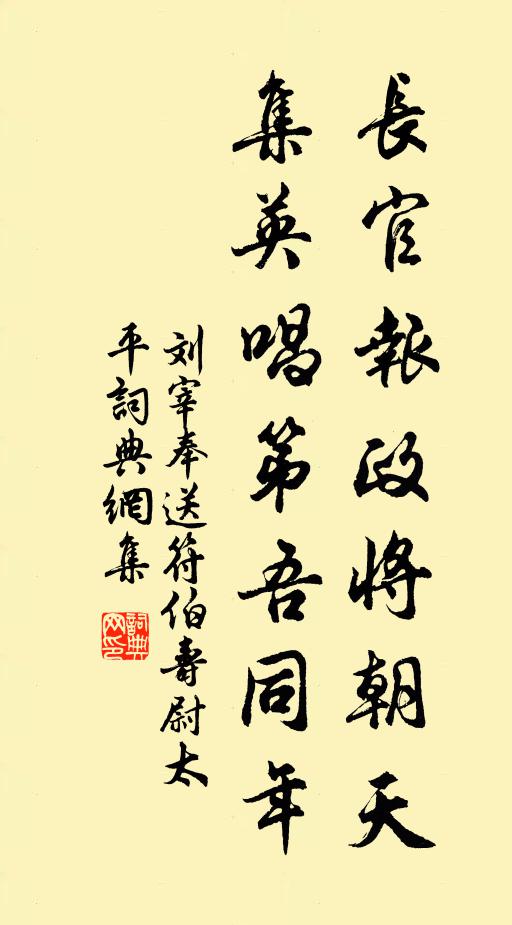 長官報政將朝天
集英唱第吾同年
刘宰奉送符伯壽尉太
平詞典網集
詞典
网印